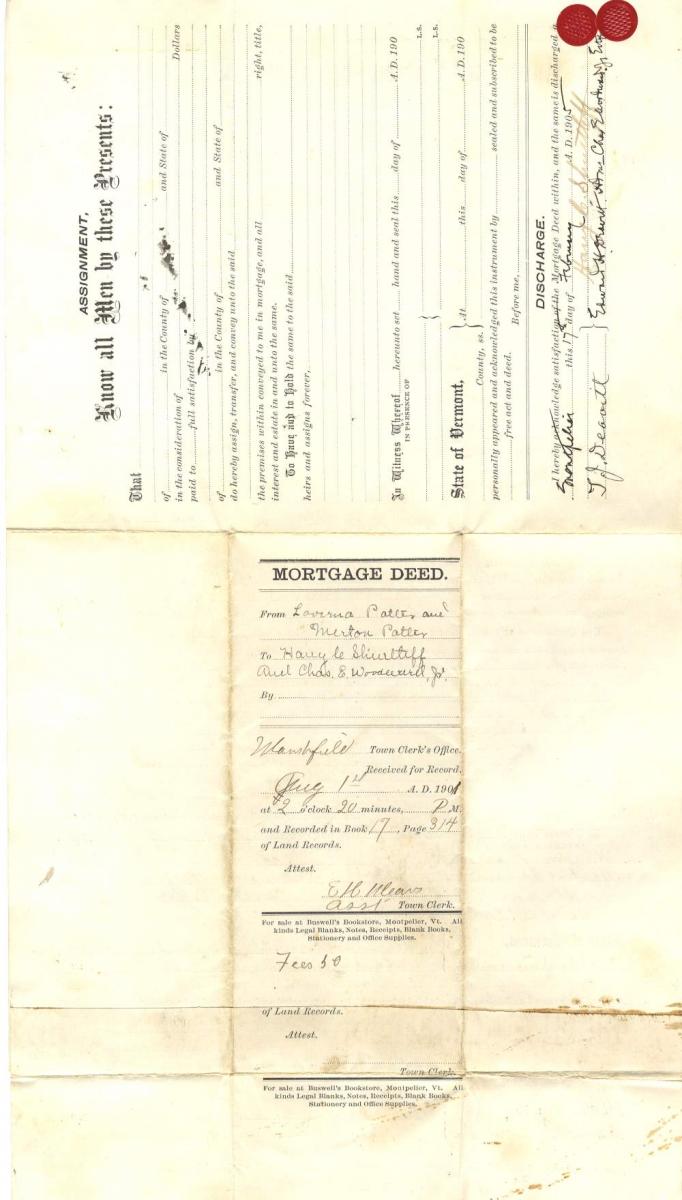 ASSIGNMENT,
Know all Men by these Presents:
That
of in the County of and State of
in the consideration of Dollars
paid to full satisfaction by
of in the County of and State of
do hereby assign, transfer, and convey unto the said
right, title,
the premises within conveyed to me in mortgage, and all
interest and estate in and unto the same.
To Have and to Hold the same to the said
heirs and assigns forever,
In Witness Whereof hereunto set hand and seal this day of A.D. 190
IN PRESENCE OF
L.S.
L.S.
State of Vermont, At this day of A.D. 190
County, ss.
personally appeared and acknowledged this instrument by sealed and subscribed to be
free act and deed.
Before me,
DISCHARGE.
I hereby acknowledge satisfaction of the Mortgage Deed within, and the same is discharged
Montpelier this 17th day of February A.D. 1905
Harry C. Shurtleff
T. J. Deavitt Edward H. Deavitt Chas E Woodward Jr
MORTGAGE DEED.
From Laverna Patter and
Merton Patter
To Harry C Shurtleff
And Chas. E. Woodward, Jr.
By
Mansfield Town Clerk's Office.
Received for Record,
Aug 1st A. D. 1901
at 2 o'clock 20 minutes, P M.
and Recorded in Book 17, Page 314
of Land Records.
Attest.
E H Mears
Asst Town Clerk.
For sale at Buswell's Bookstore, Montpelier, Vt. All
kinds Legal Blanks, Notes, Receipts, Blank Books,
Stationery and Office Supplies.
Fees 50
of Land Records.
Attest.
Town Clerk.
For sale at Buswell's Bookstore, Montpelier, Vt. All
kinds Legal Blanks, Notes, Receipts, Blank Books,
Stationery and Office Supplies.